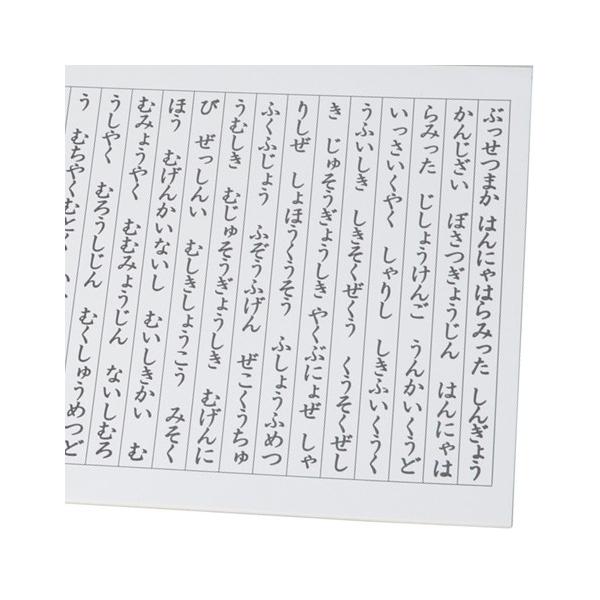 ぶっせつまか はんにゃはらみった しんぎょう
かんじざい ぼさつぎょうじん はんにゃは
らみった じしょうけんご うんかいくうど
いっさいくやく しゃりし しきふいくうく
うふいしき しきそくぜくう くうそくぜし
き じゅそうぎょうしき やくぶにょぜ しゃ
りしぜ しょほうくうそう ふしょうふめつ
ふくふじょう ふぞうふげん ぜこくうちゅ
うむしき むじゅそうぎょうしき むげんに
び ぜっしんい むしきしょうこう みそく
ほう むげんかいないし むいしきかい む
むみょうやく むむみょうじん ないしむろ
うしやく むろうしじん むくしゅうめつど
う むちやくむとく